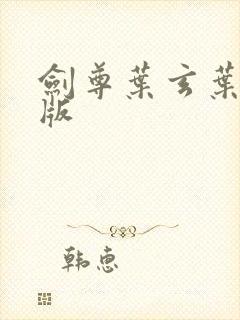 劍尊葉玄葉
版
韩惠